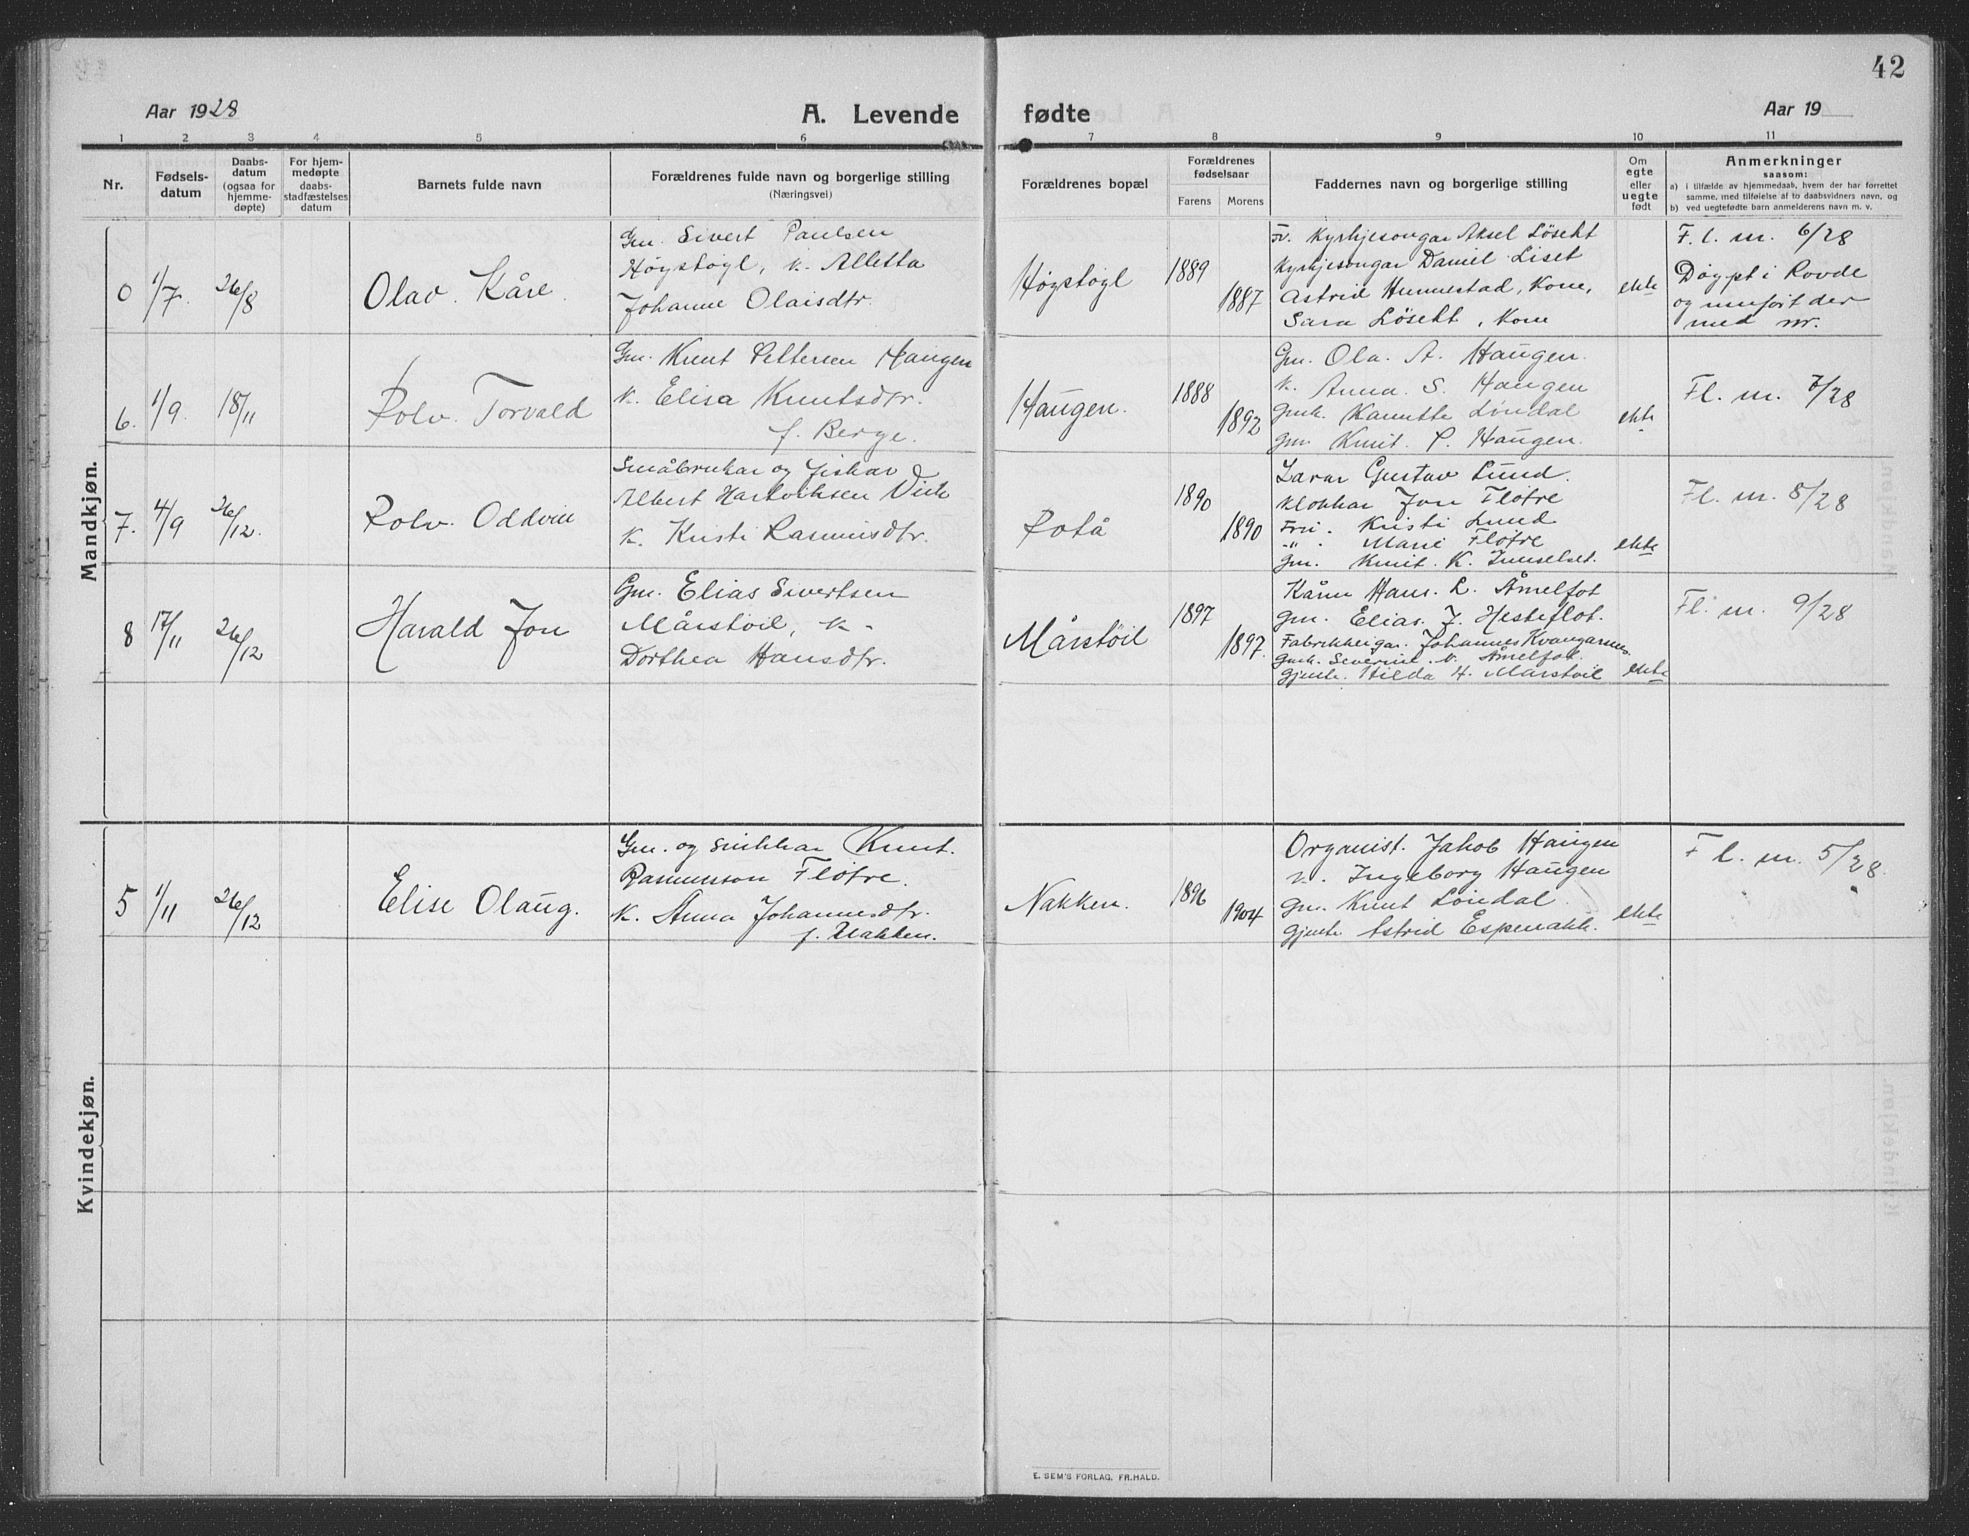 42
Aar 1928
A. Levende fødte
Aar 19
1 2 3 4 5 6 7 8 9 10 11
Nr.
Fødsels-
datum
Daabs-
datum
(ogsaa for
hjemme-
døpte)
For hjem-
medøpte
daabs-
stadfæstelses
datum
Barnets fulde navn
Forældrenes fulde navn og borgerlige stilling
(Næringsvei)
Forældrenes bopæl
Forældrenes
fødselsaar
Farens Morens
Faddernes navn og borgerlige stilling
Om
egte
eller
uegte
født
Anmerkninger
saasom:
a) i tilfælde av hjemmedaab, hvem der har forrettet
samme, med tilføielse af to daabsvidners navn, og
b) ved uegtefødte barn anmelderens navn m. v.
Mandkjøn.
0 1/7 26/8
Olav Kåre
Gm. Sivert Paulsen
Høystøyl, k. Alletta
Johanne Olaisdtr.
Høystøyl
1889
1887
Fr. Kyrkjesongar Aksel Løsekt
Kyrkjesongar Daniel Liset
Astrid Hunnestad, Kone,
Sara Løsekt, Kone
ekte
F. l. m. 6/28
Døypt i Rovde
og innført der
med nr.
6. 1/9 18/11
Rolv Torvald
Gm. Knut Pettersen Haugen
k. Elisa Knutsdtr.
f. Berge.
Haugen.
1888
1892
Gm. Ola. A. Haugen.
k. Anna S. Haugen
Gmk. Kanutte Løndal
Gm. Knut. P. Haugen.
ekte
Fl. m. 7/28
7. 4/9 26/12.
Rolv. Oddvin
Småbrukar og fiskar
Albert Hartviksen Vik
k. Kristi Rasmusdtr.
Rotå
1890
1890
Lærar Gustav Lund.
Klokkar Jon Fløtre
Fru. Kristi Lund
" . Marie Fløtre
Gm. Knut. K. Innselset.
ekte
Fl. m. 8/28
8 17/11 26/12
Harald Jon
Gm. Elias Sivertsen
Mårstøil, k.
Dorthea Hansdtr.
Mårstøil
1897
1897.
Kårm Hans. L. Åmelfot
Gm. Elias. J. Hesteflot.
Fabrikkeigar. Johannes Kvangarsnes
Gmk. Severine. K. Åmelfot.
Gjente. Hilda H. Mårstøil
ekte
Fl. m. 9/28
Kvindekjøn.
5 1/11 26/12
Elise Olaug.
Gm. og snikkar Knut.
Rasmusson Fløtre.
k. Anna Johannesdtr.
f. Nakken.
Nakken.
1896
1904
Organist. Jakob Haugen
k. Ingeborg Haugen
Gm. Knut Løndal.
Gjente Astrid Espenakk.
ekte
Fl. m. 5/28.
E. SEM'S FORLAG, FR.HALD.